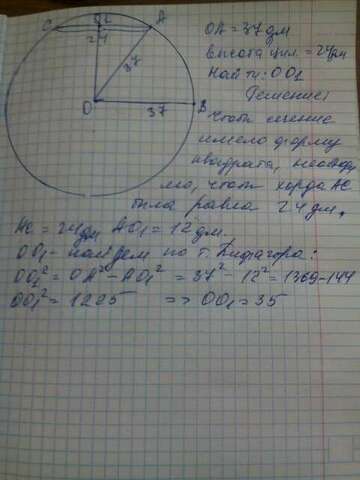 C O1 A
24
37
O 37 B
OA = 37 дм
высота цил. = 24 дм
Найти: OO1
Решение:
Чтобы сечение
имело форму
квадрата, необходи
мо, чтоб хорда AC
была равна 24 дм.
AC = 24 дм AO1 = 12 дм.
OO1 - найдем по т. Пифагора:
OO1² = OA² - AO1² = 37² - 12² = 1369-144
OO1² = 1225 => OO1 = 35